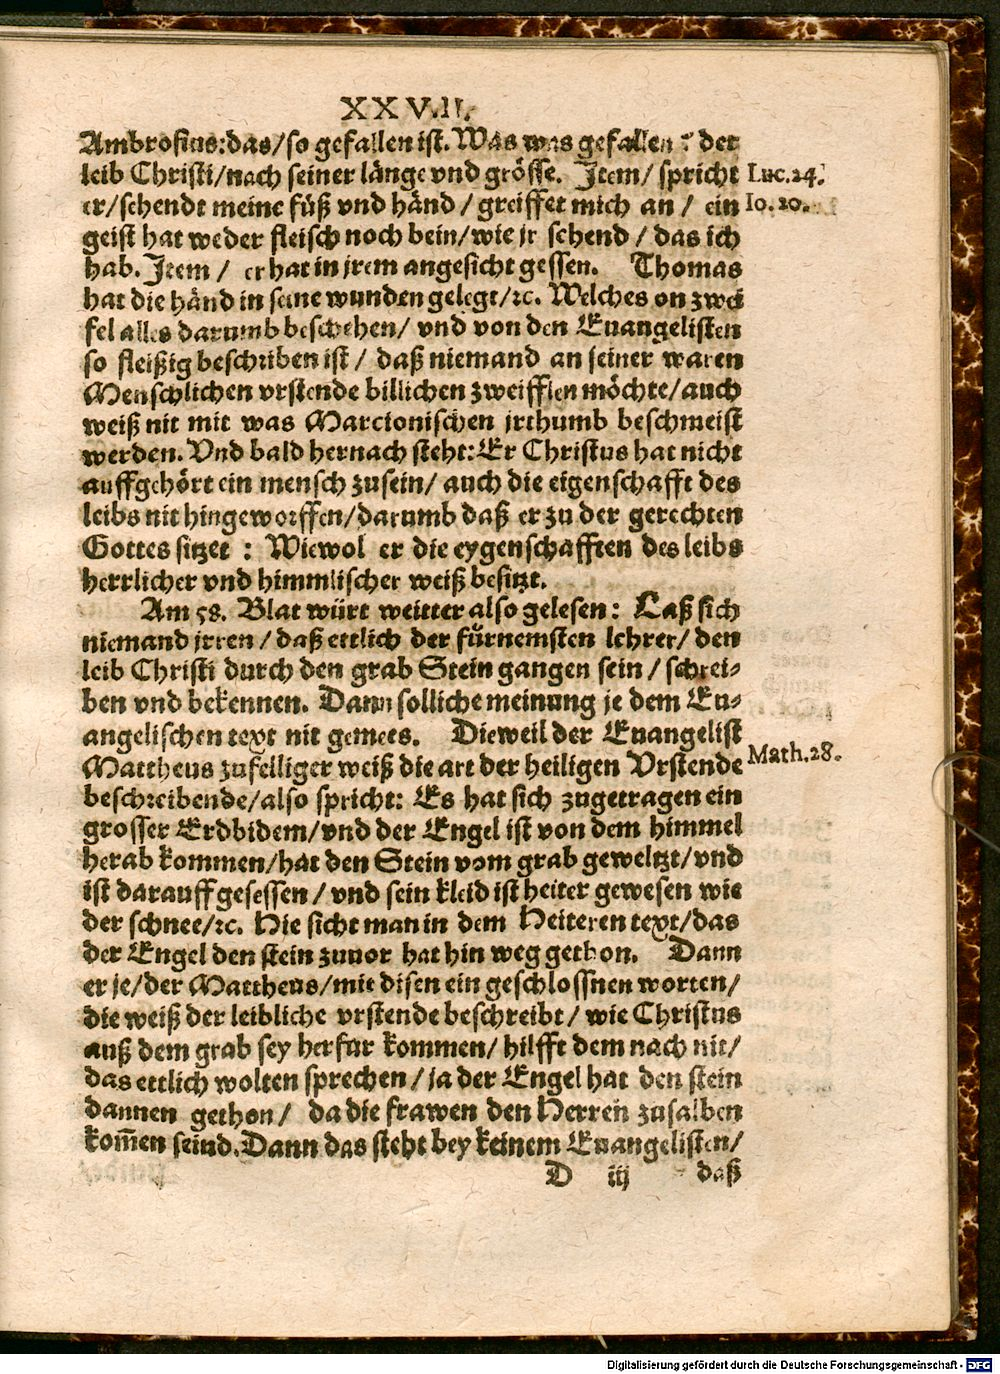 XXVII.
Ambrosius:das/so gefallen ist. Was was gefallen? der
leib Christi/nach seiner länge vnd grösse. Item/ spricht
Luc.24.
er/sehendt meine füß vnd händ / greiffet mich an / ein
Io.20.
geist hat weder fleisch noch bein/wie jr sehend / das ich
hab. Item / er hat in jrem angesicht gessen. Thomas
hat die händ in seine wunden gelegt/ꝛc. Welches on zwei
fel alles darumb beschehen/ vnd von den Euangelisten
so fleißig beschriben ist / daß niemand an seiner waren
Menschlichen vrstende billichen zweifflen möchte/auch
weiß nit mit was Marcionischen jrthumb beschmeist
werden. Vnd bald hernach steht:Er Christus hat nicht
auffgehört ein mensch zusein/ auch die eigenschafft des
leibs nit hingeworffen/darumb daß er zu der gerechten
Gottes sitzet : Wiewol er die eygenschafften des leibs
herrlicher vnd himmlischer weiß besitzt.
Am 58. Blat würt weitter also gelesen: Laß sich
niemand jrren / daß ettlich der fürnemsten lehrer/ den
leib Christi durch den grab Stein gangen sein / schrei-
ben vnd bekennen. Dann solliche meinung je dem Eu-
angelischen text nit gemees. Dieweil der Euangelist
Mattheus zufelliger weiß die art der heiligen Vrstende
Math.28.
beschreibende/also spricht: Es hat sich zugetragen ein
grosser Erdbidem/vnd der Engel ist von dem himmel
herab kommen/hat den Stein vom grab geweltzt/vnd
ist darauff gesessen / vnd sein kleid ist heiter gewesen wie
der schnee/ꝛc. Hie sicht man in dem Heiteren text/das
der Engel den stein zuuor hat hin weg gethon. Dann
er je/der Mattheus/mit disen ein geschlossnen worten/
die weiß der leibliche vrstende beschreibt / wie Christus
auß dem grab sey herfur kommen/ hilfft dem nach nit/
das ettlich wolten sprechen / ja der Engel hat den stein
dannen gethon/ da die frawen den Herren zusalben
kom̄en seind. Dann das steht bey keinem Euangelisten/
D iij daß
Digitalisierung gefördert durch die Deutsche Forschungsgemeinschaft - DFG